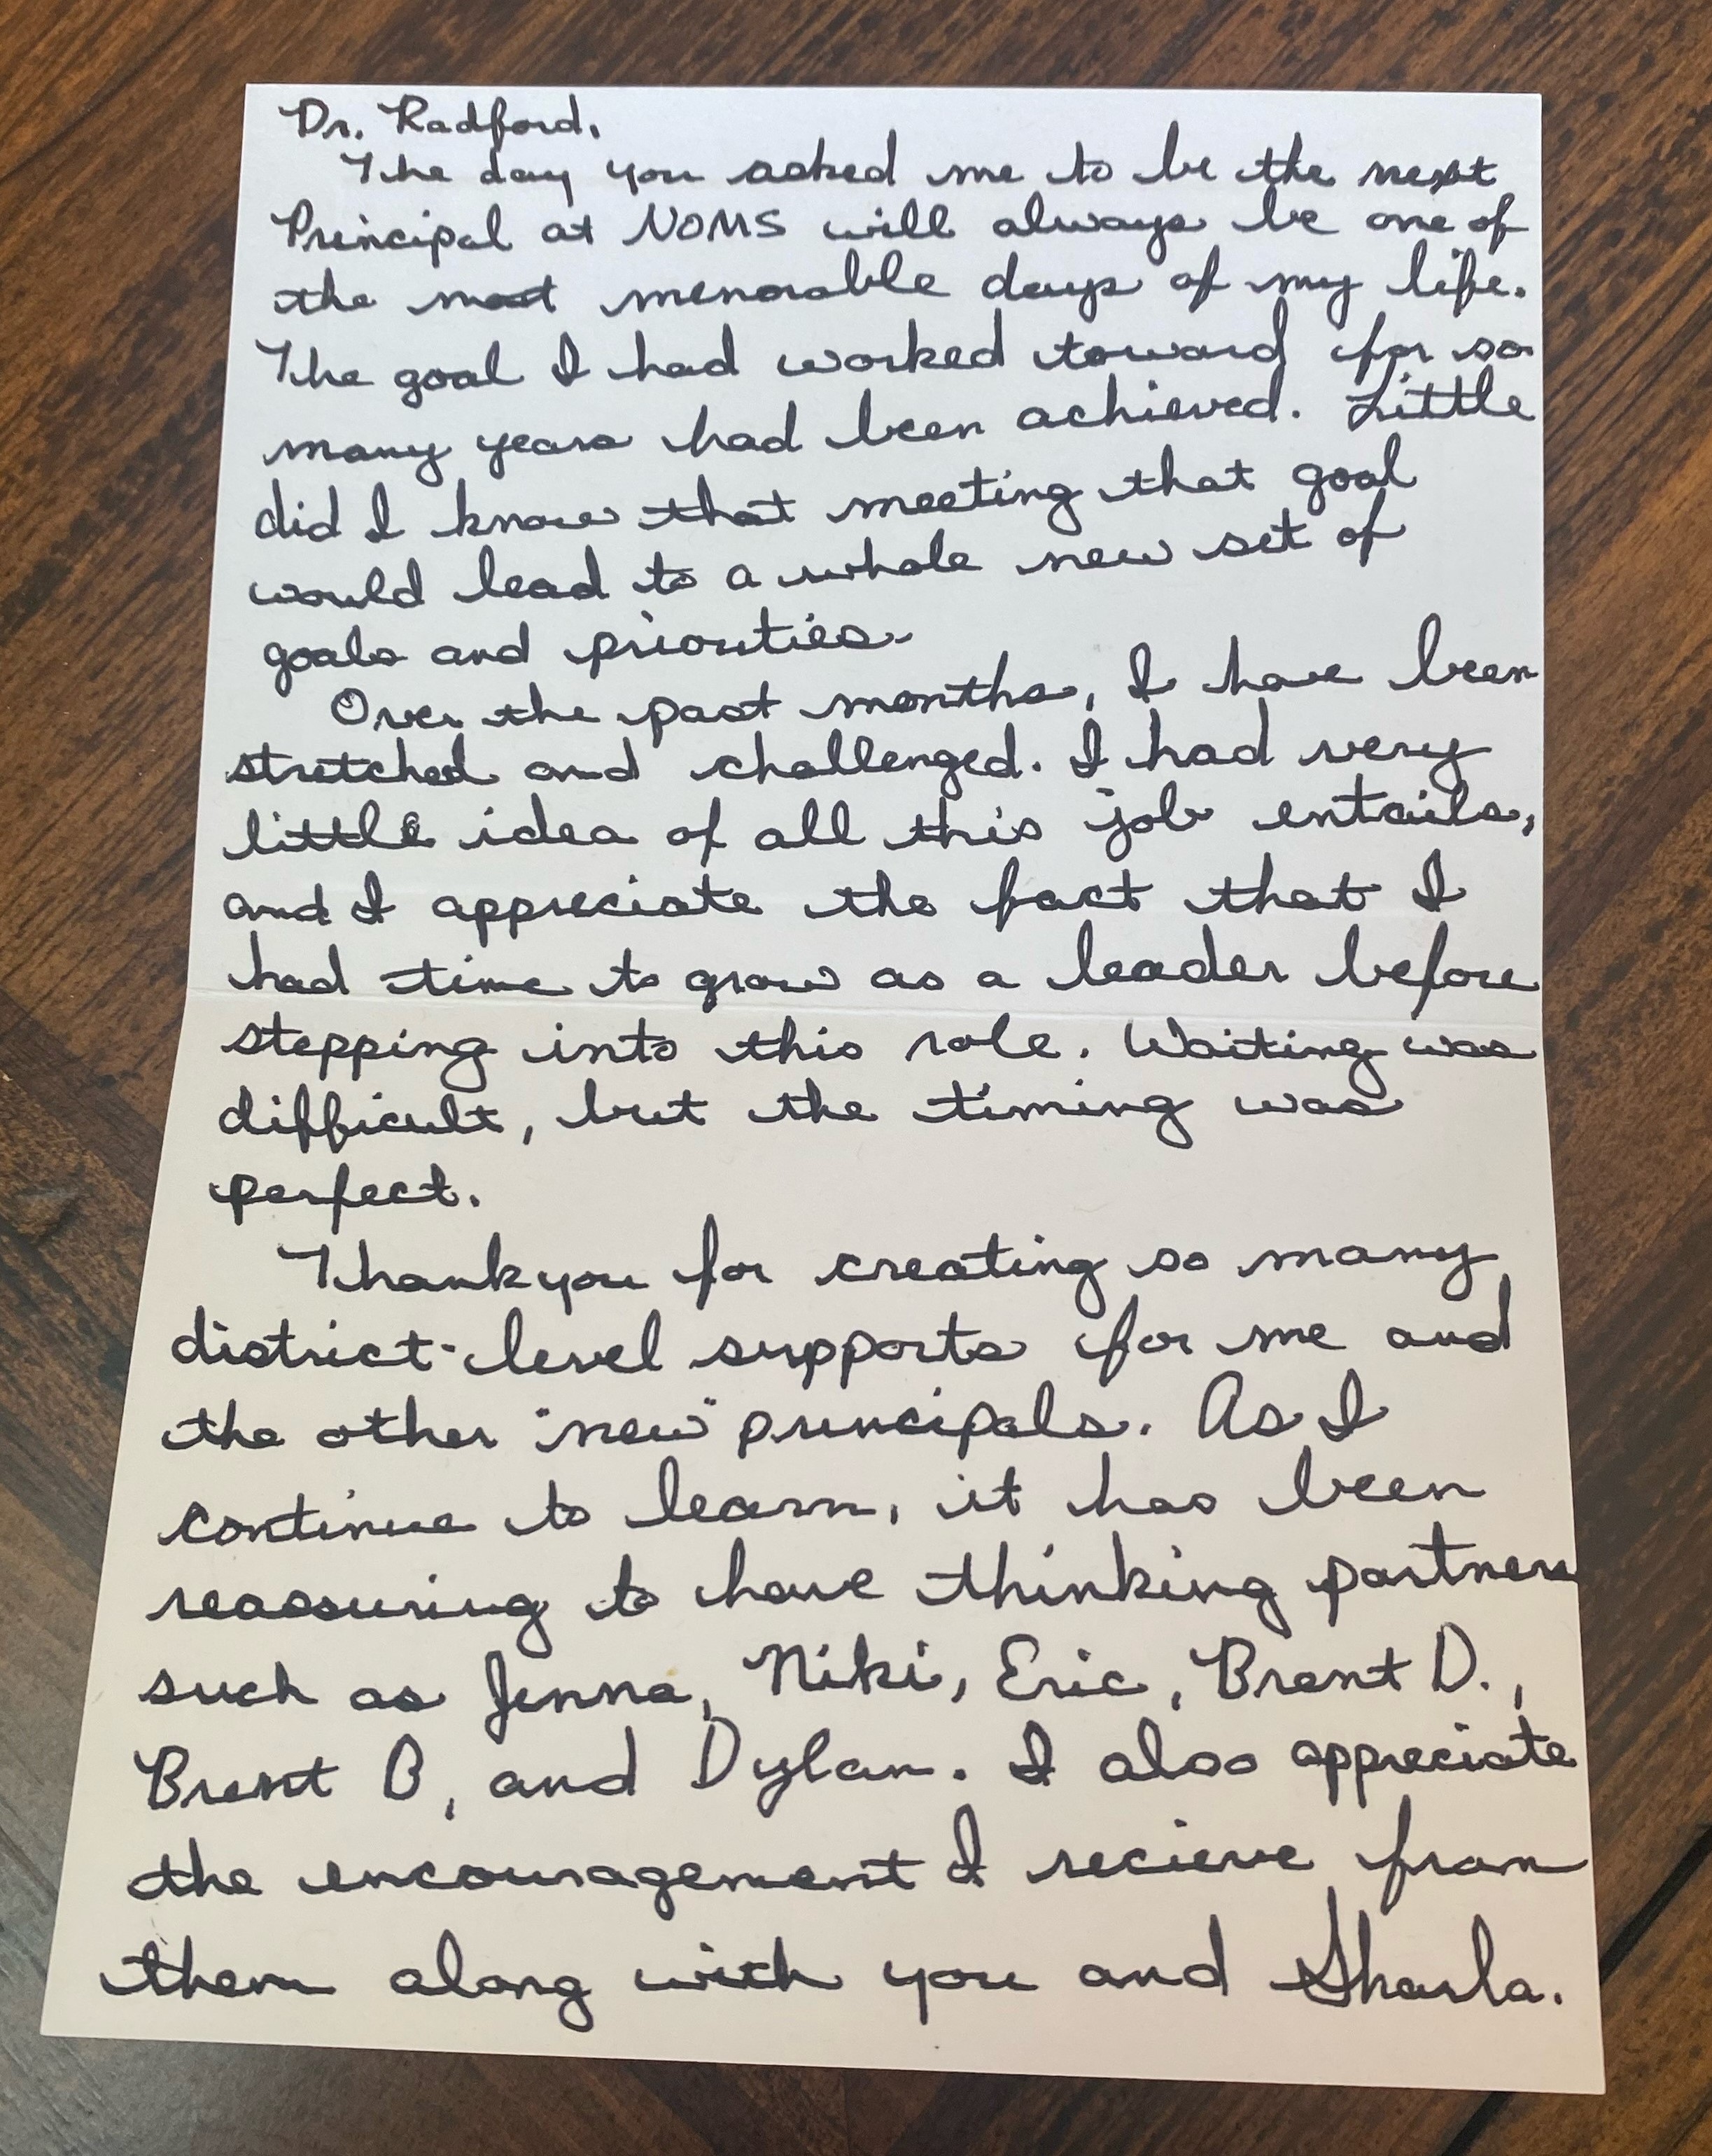 Dr. Radford,
The day you asked me to be the next
Principal at NOMS will always be one of
the most memorable days of my life.
The goal I had worked toward for so
many years had been achieved. Little
did I know that meeting that goal
would lead to a whole new set of
goals and priorities.
Over the past months, I have been
stretched and challenged. I had very
little idea of all this job entails,
and I appreciate the fact that I
had time to grow as a leader before
stepping into this role. Waiting was
difficult, but the timing was
perfect.
Thank you for creating so many
district-level supports for me and
the other "new" principals. As I
continue to learn, it has been
reassuring to have thinking partners
such as Jenna, Niki, Eric, Brent D.,
Brent B, and Dylan. I also appreciate
the encouragement I recieve from
them along with you and Sharla.